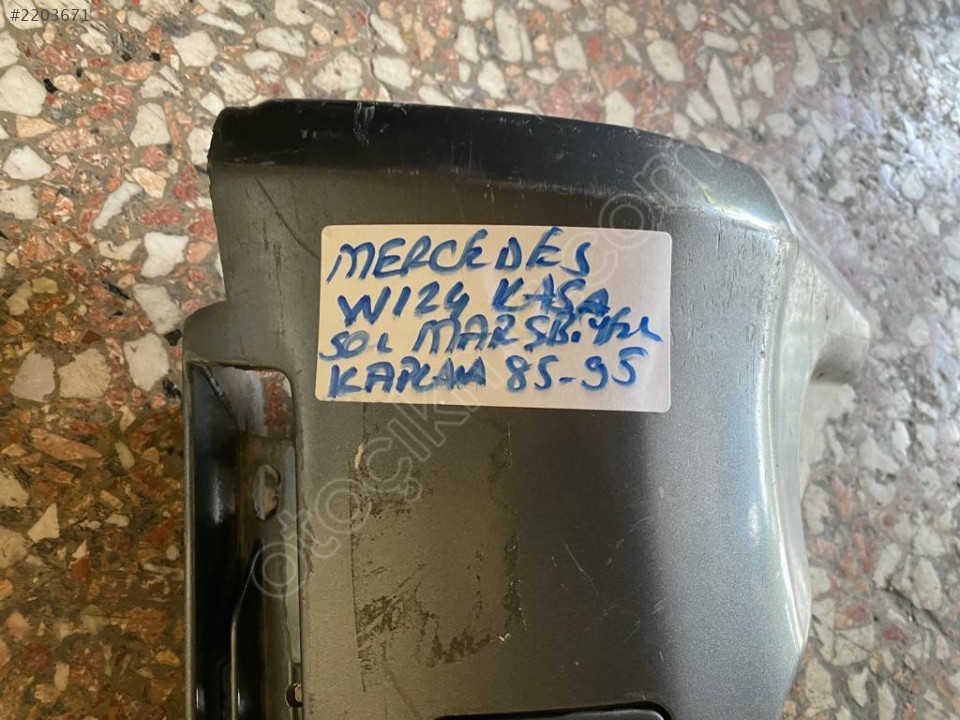 #2203671
MERCEDES
W124 KASA
SOL MARŞBİYEL
KAPLAMA 85-95
otoçıkma.com